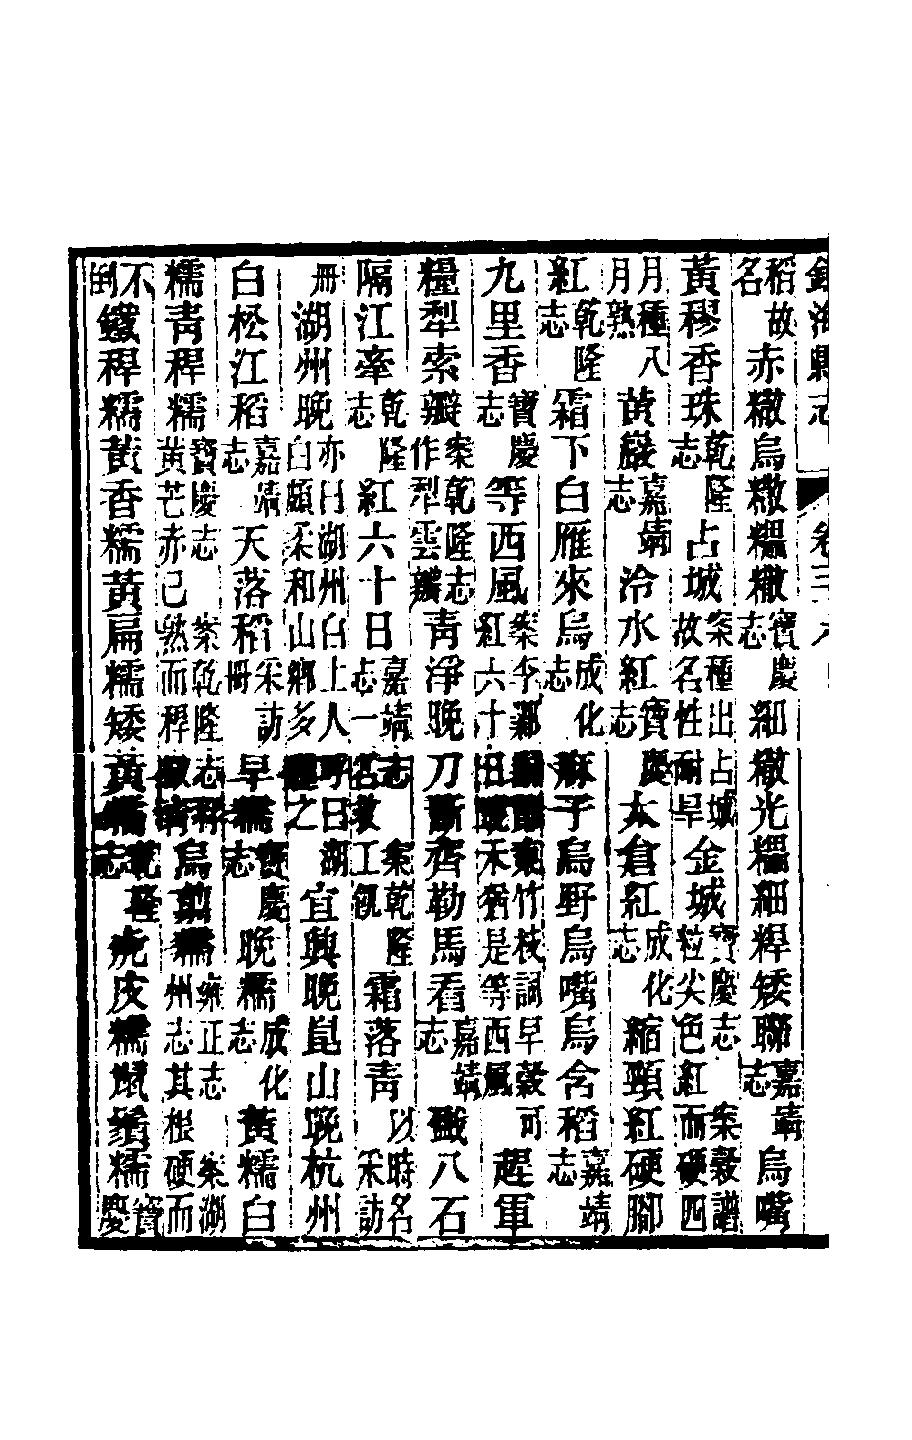 稻故名赤糤烏糤糯糤寶慶志細糤光糯細稈矮聯嘉靖志烏嘴
黃穋香珠乾隆志占城案種出占城故名性耐旱金城寶慶志案穀譜粒尖色紅而硬四
月種八月熟黃巖嘉靖志冷水紅寶慶志太倉紅成化志縮頸紅硬腳
紅乾隆志霜下白雁來烏成化志麻子烏野烏嘴烏含稻嘉靖志
九里香寶慶志等西風案李鄴嗣鄮東竹枝詞早穀可紅六十日晚禾猶是等西風趕軍
糧犁索瓣案乾隆志作犁雲瓣青淨晚刀斷齊勒馬看嘉靖志撇八石
隔江牽乾隆志紅六十日嘉靖志案乾隆志一名救工飢霜落青以時名采訪
冊湖州晚亦曰湖州白上人呼曰湖白頗柔和山鄉多種之宜興晚崑山晚杭州
白松江稻嘉靖志天落稻采訪冊早糯寶慶志晚糯成化志黃糯白
糯青稈糯寶慶志案乾隆志稈黃芒赤已熟而稈微青烏剪糯雍正志案湖州志其根硬而
不倒鐵稈糯黃香糯黃扁糯矮黃糯乾隆志虎皮糯鼠鬚糯寶慶